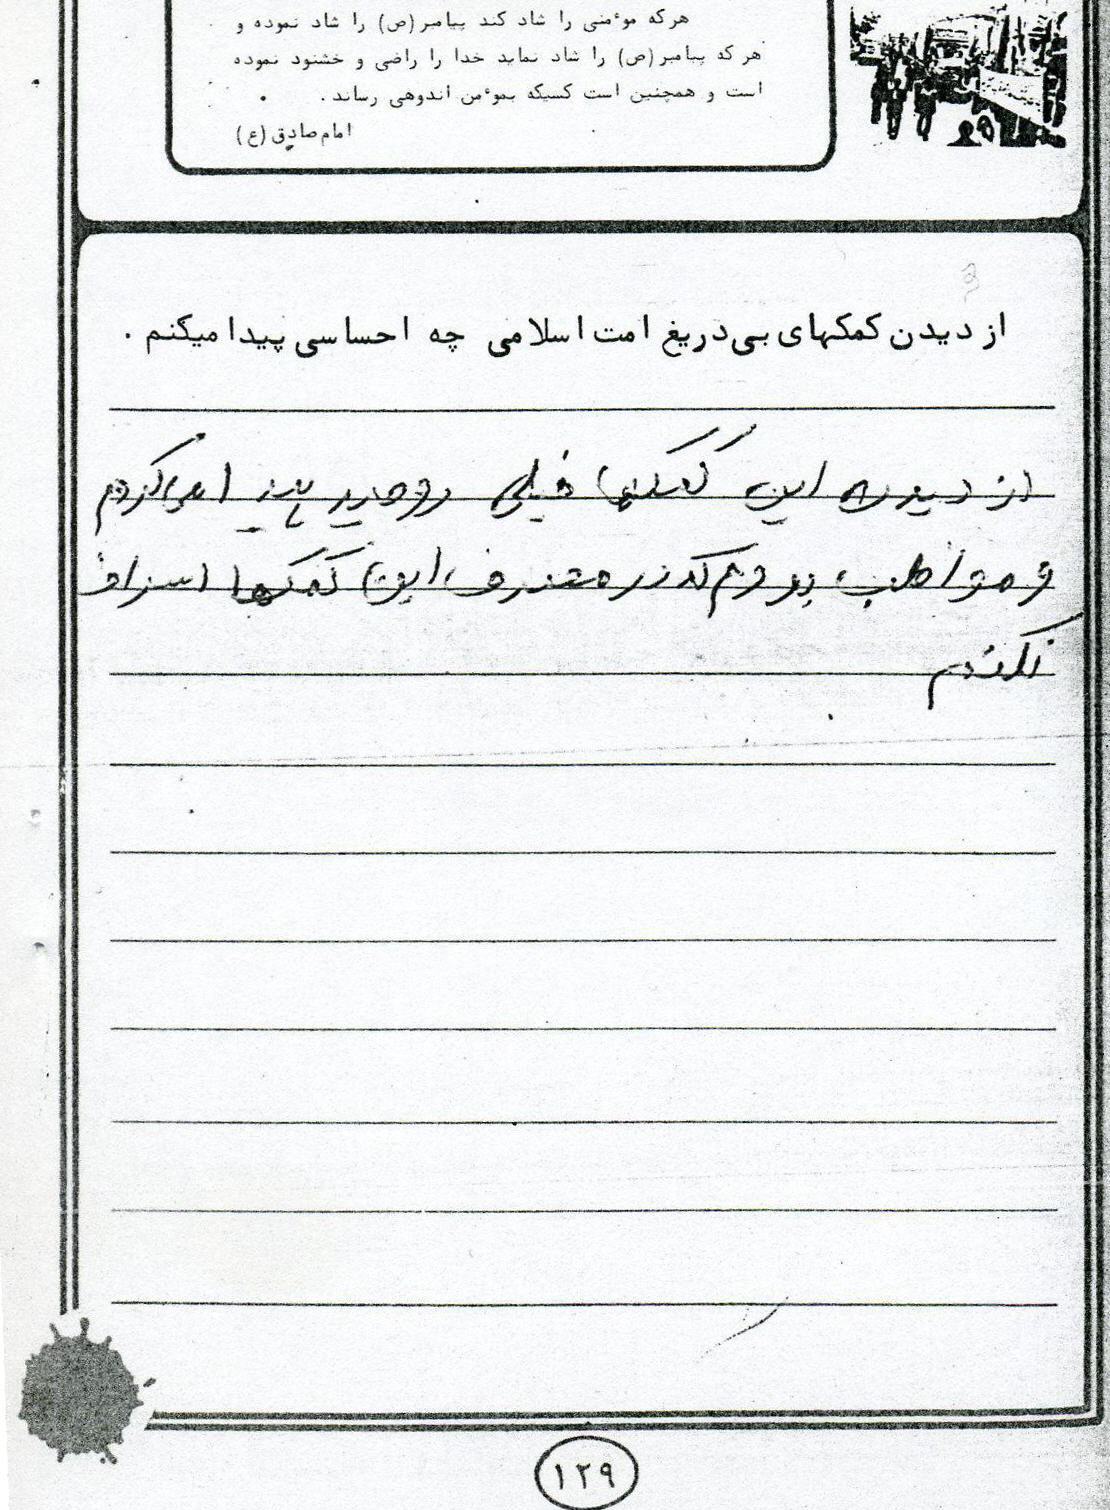 هرکه موٴمنی را شاد کند پیامبر (ص) را شاد نموده و
هرکه پیامبر (ص) را شاد نماید خدا را راضی و خشنود نموده
است و همچنین است کسیکه بموٴمن اندوهی رساند .
امام صادق (ع)
از دیدن کمکهای بی‌دریغ امت اسلامی چه احساسی پیدا میکنم .
از دیدن این کمکها خیلی روحیه می‌کردم
و مواظب بودم که در مصرف این کمکها اسراف
نکنم
۱۲۹